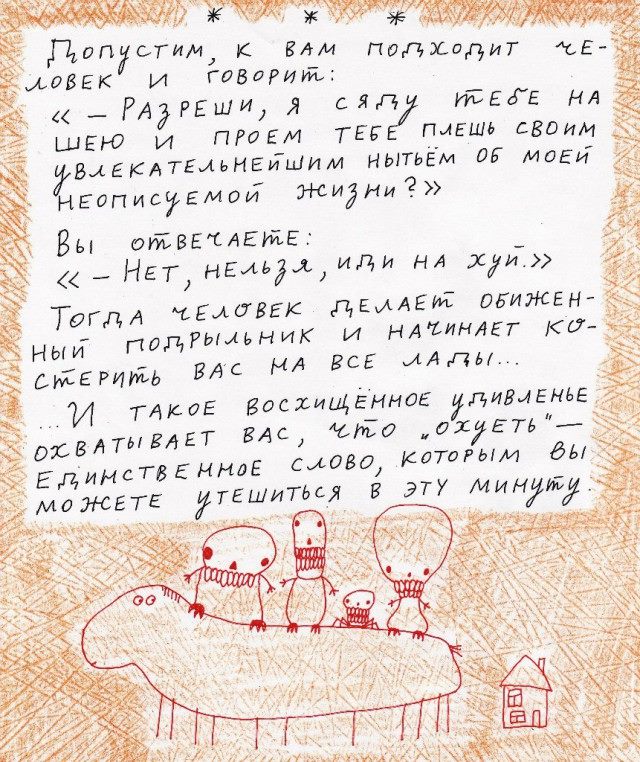 * * *
Допустим, к вам подходит че-
ловек и говорит:
« – Разреши, я сяду тебе на
шею и проем тебе плешь своим
увлекательнейшим нытьём об моей
неописуемой жизни?»
Вы отвечаете:
« – Нет, нельзя, иди на хуй.»
Тогда человек делает обижен-
ный подрыльник и начинает ко-
стерить вас на все лады...
...И такое восхищённое удивленье
охватывает вас, что „охуеть" —
единственное слово, которым вы
можете утешиться в эту минуту.